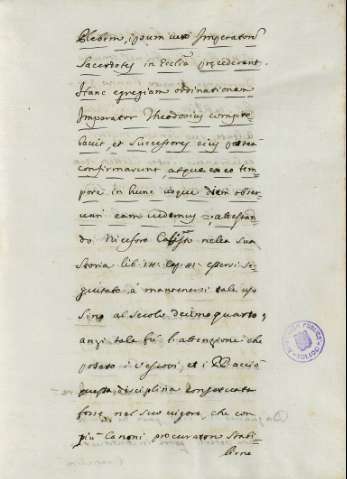 Plebem, ipsum vero Imperatorē
Sacerdotes in Ecclīa præcederent.
Hanc egregiam ordinationem
Imperator Theodosius compro-
bavit, et Successores eius posteà
confirmarunt, atque ex eo tem
pore in hunc usque diem obser-
vari eam videmus; attestan
dò Niceforo Calisto nella sua
Storia lib. cap. essersi se-
guitato, à mantenersi tale uso
sino al secolo decimo quarto,
anzi tale fù l'attenzione che
i Vescovi, et i PP. acciò
questa disciplina conservata
fosse nel suo vigore, che con
più Canoni procuraron stabi-
lirne